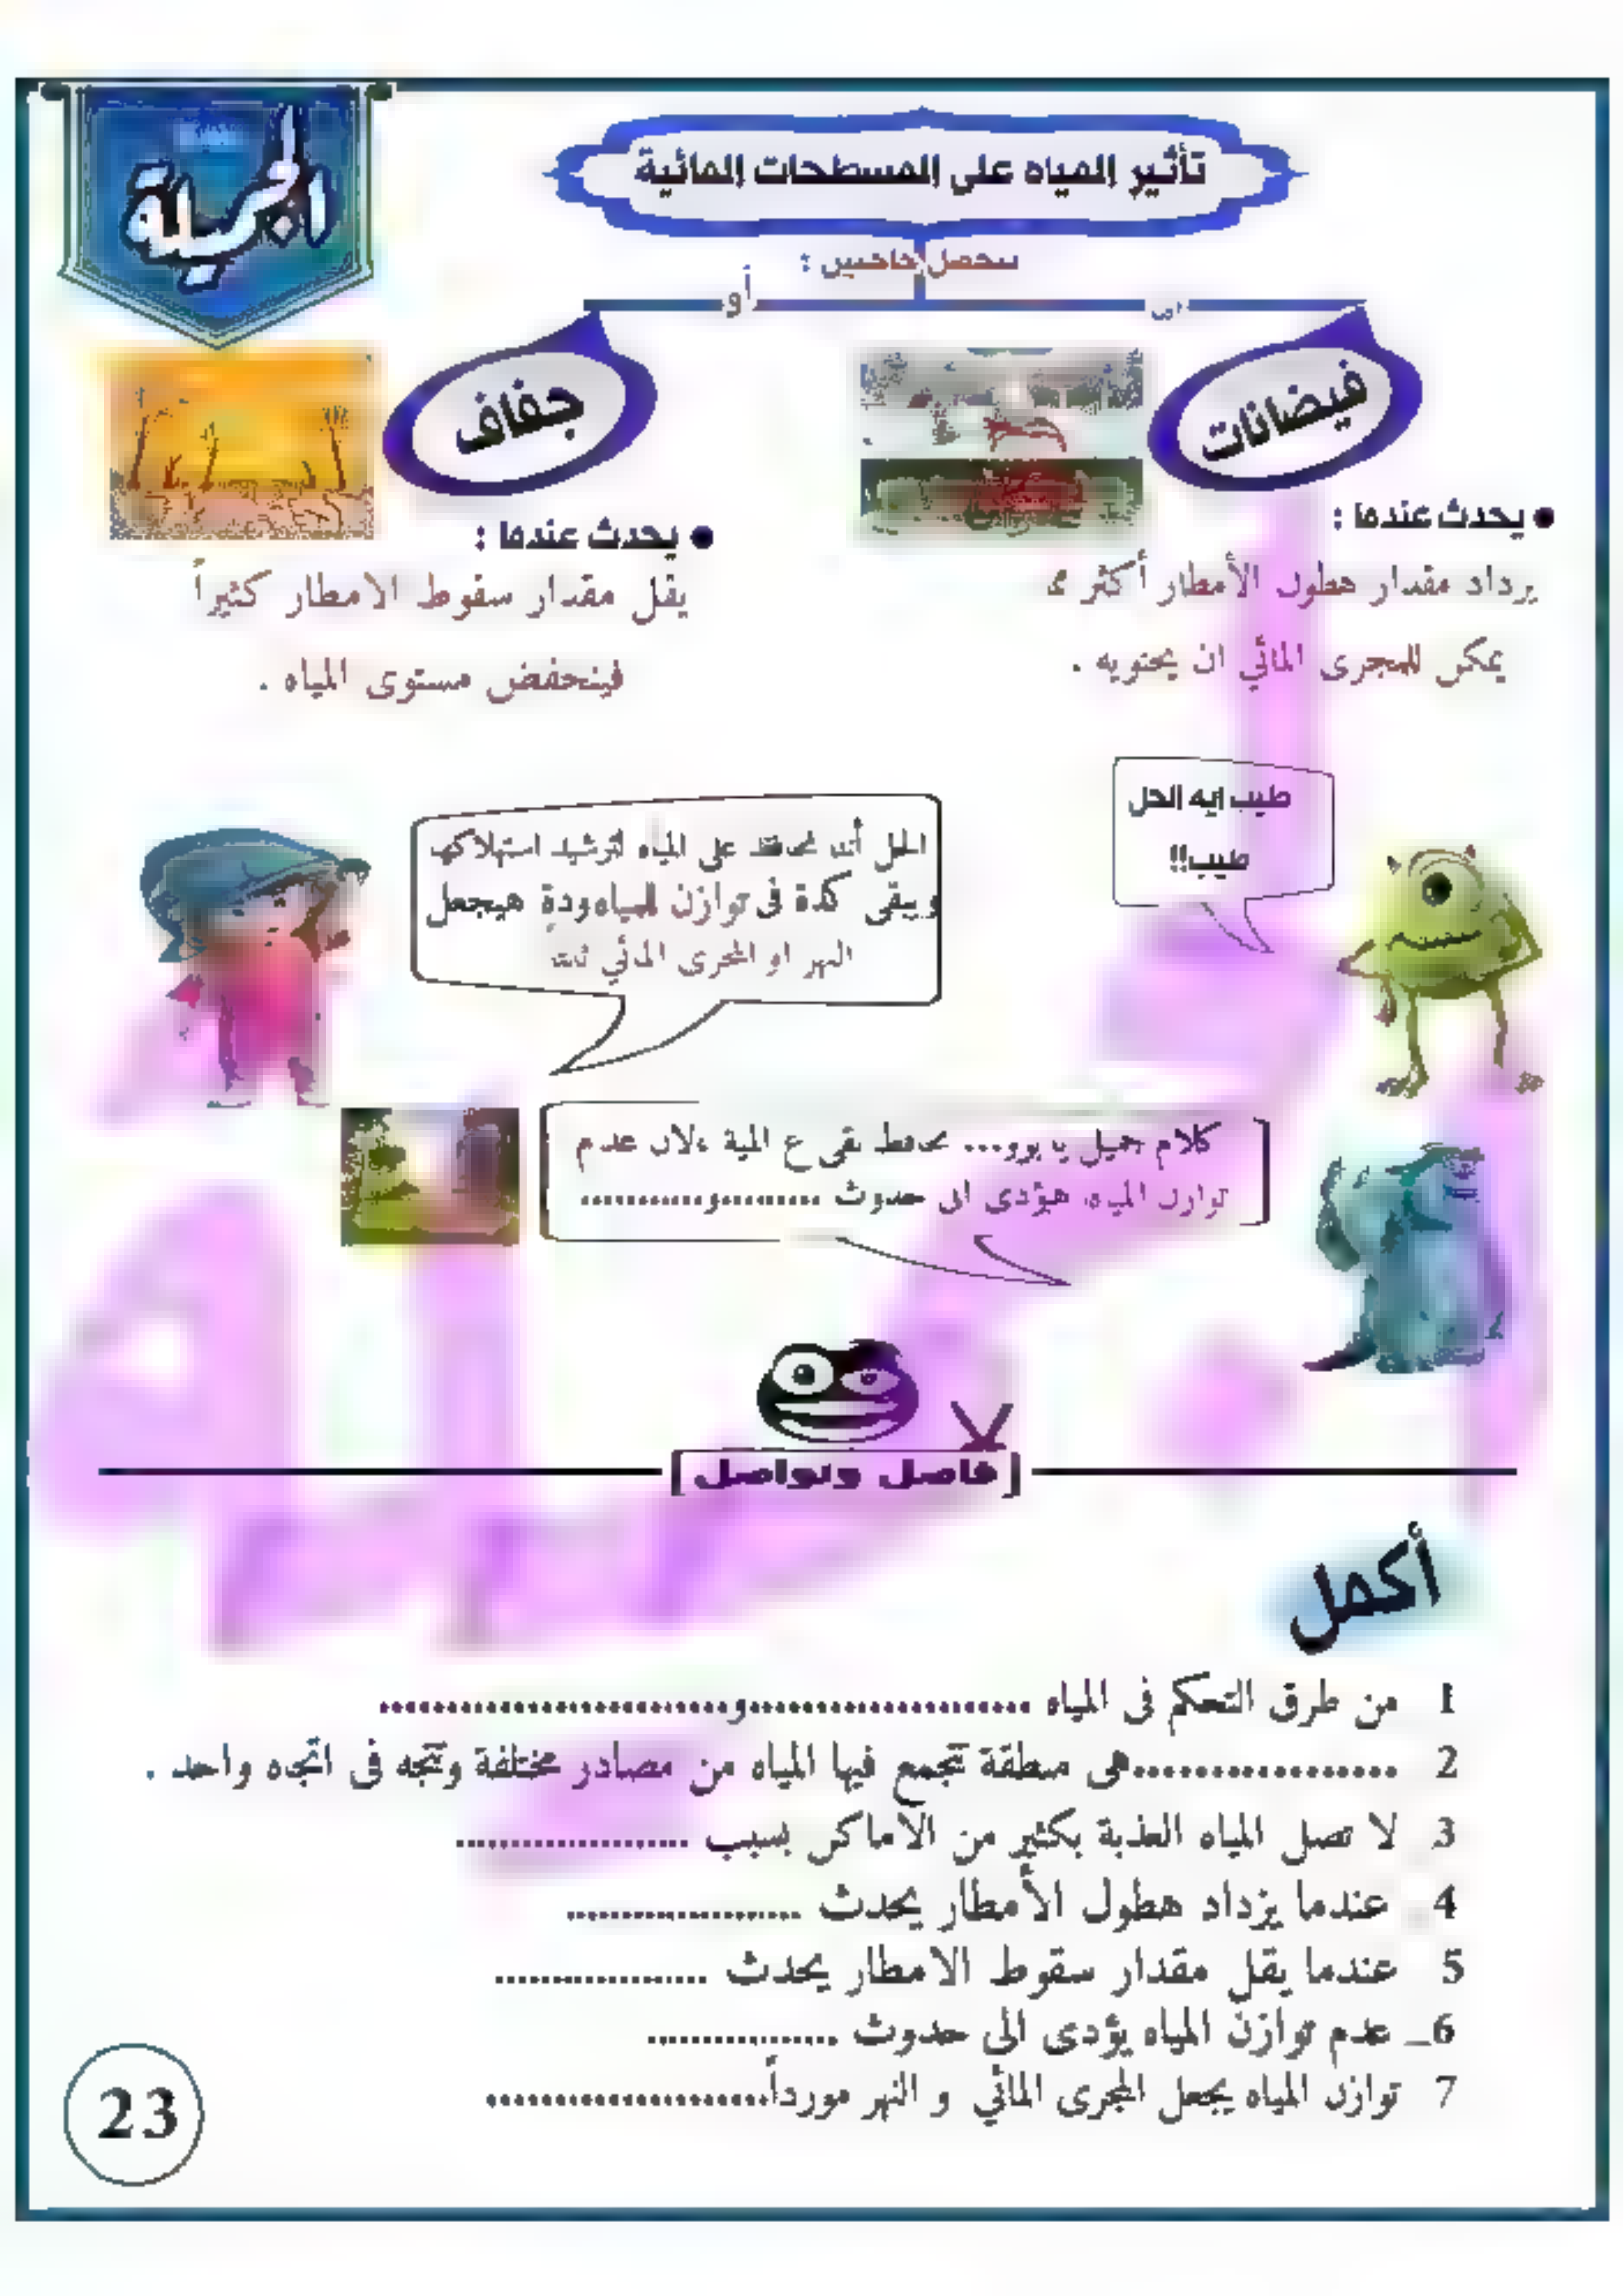 الجميلة
تأثير المياه على المسطحات المائية
سحصل حاجتين :
أو
فيضانات
جفاف
● يحدث عندما :
يزداد مقدار هطول الأمطار أكثر مما
يمكن للمجرى المائي ان يحتويه .
● يحدث عندما :
يقل مقدار سقوط الامطار كثيراً
فينخفض مستوى المياه .
طيب ايه الحل
طيب!!
الحل أننا نحافظ على المياه لترشيد استهلاكها
ويبقى كدة فى توازن للمياه ودة هيجعل
النهر او المجرى المائي ثابت
كلام جميل يا بوو... نحافظ بقى ع المية ،لان عدم
توازن المياه هيؤدى الى حدوث ............و............
[فاصل ونواصل]
أكمل
1 من طرق التحكم فى المياه .....................و..........................
2 ..................هى منطقة تتجمع فيها المياه من مصادر مختلفة وتتجه فى اتجاه واحد .
3 لا تصل المياه العذبة بكثير من الأماكن بسبب ....................
4 عندما يزداد هطول الأمطار يحدث ....................
5 عندما يقل مقدار سقوط الامطار يحدث ..................
6_ عدم توازن المياه يؤدى الى حدوث ................
7 توازن المياه يجعل المجرى المائي و النهر مورداً.....................
23